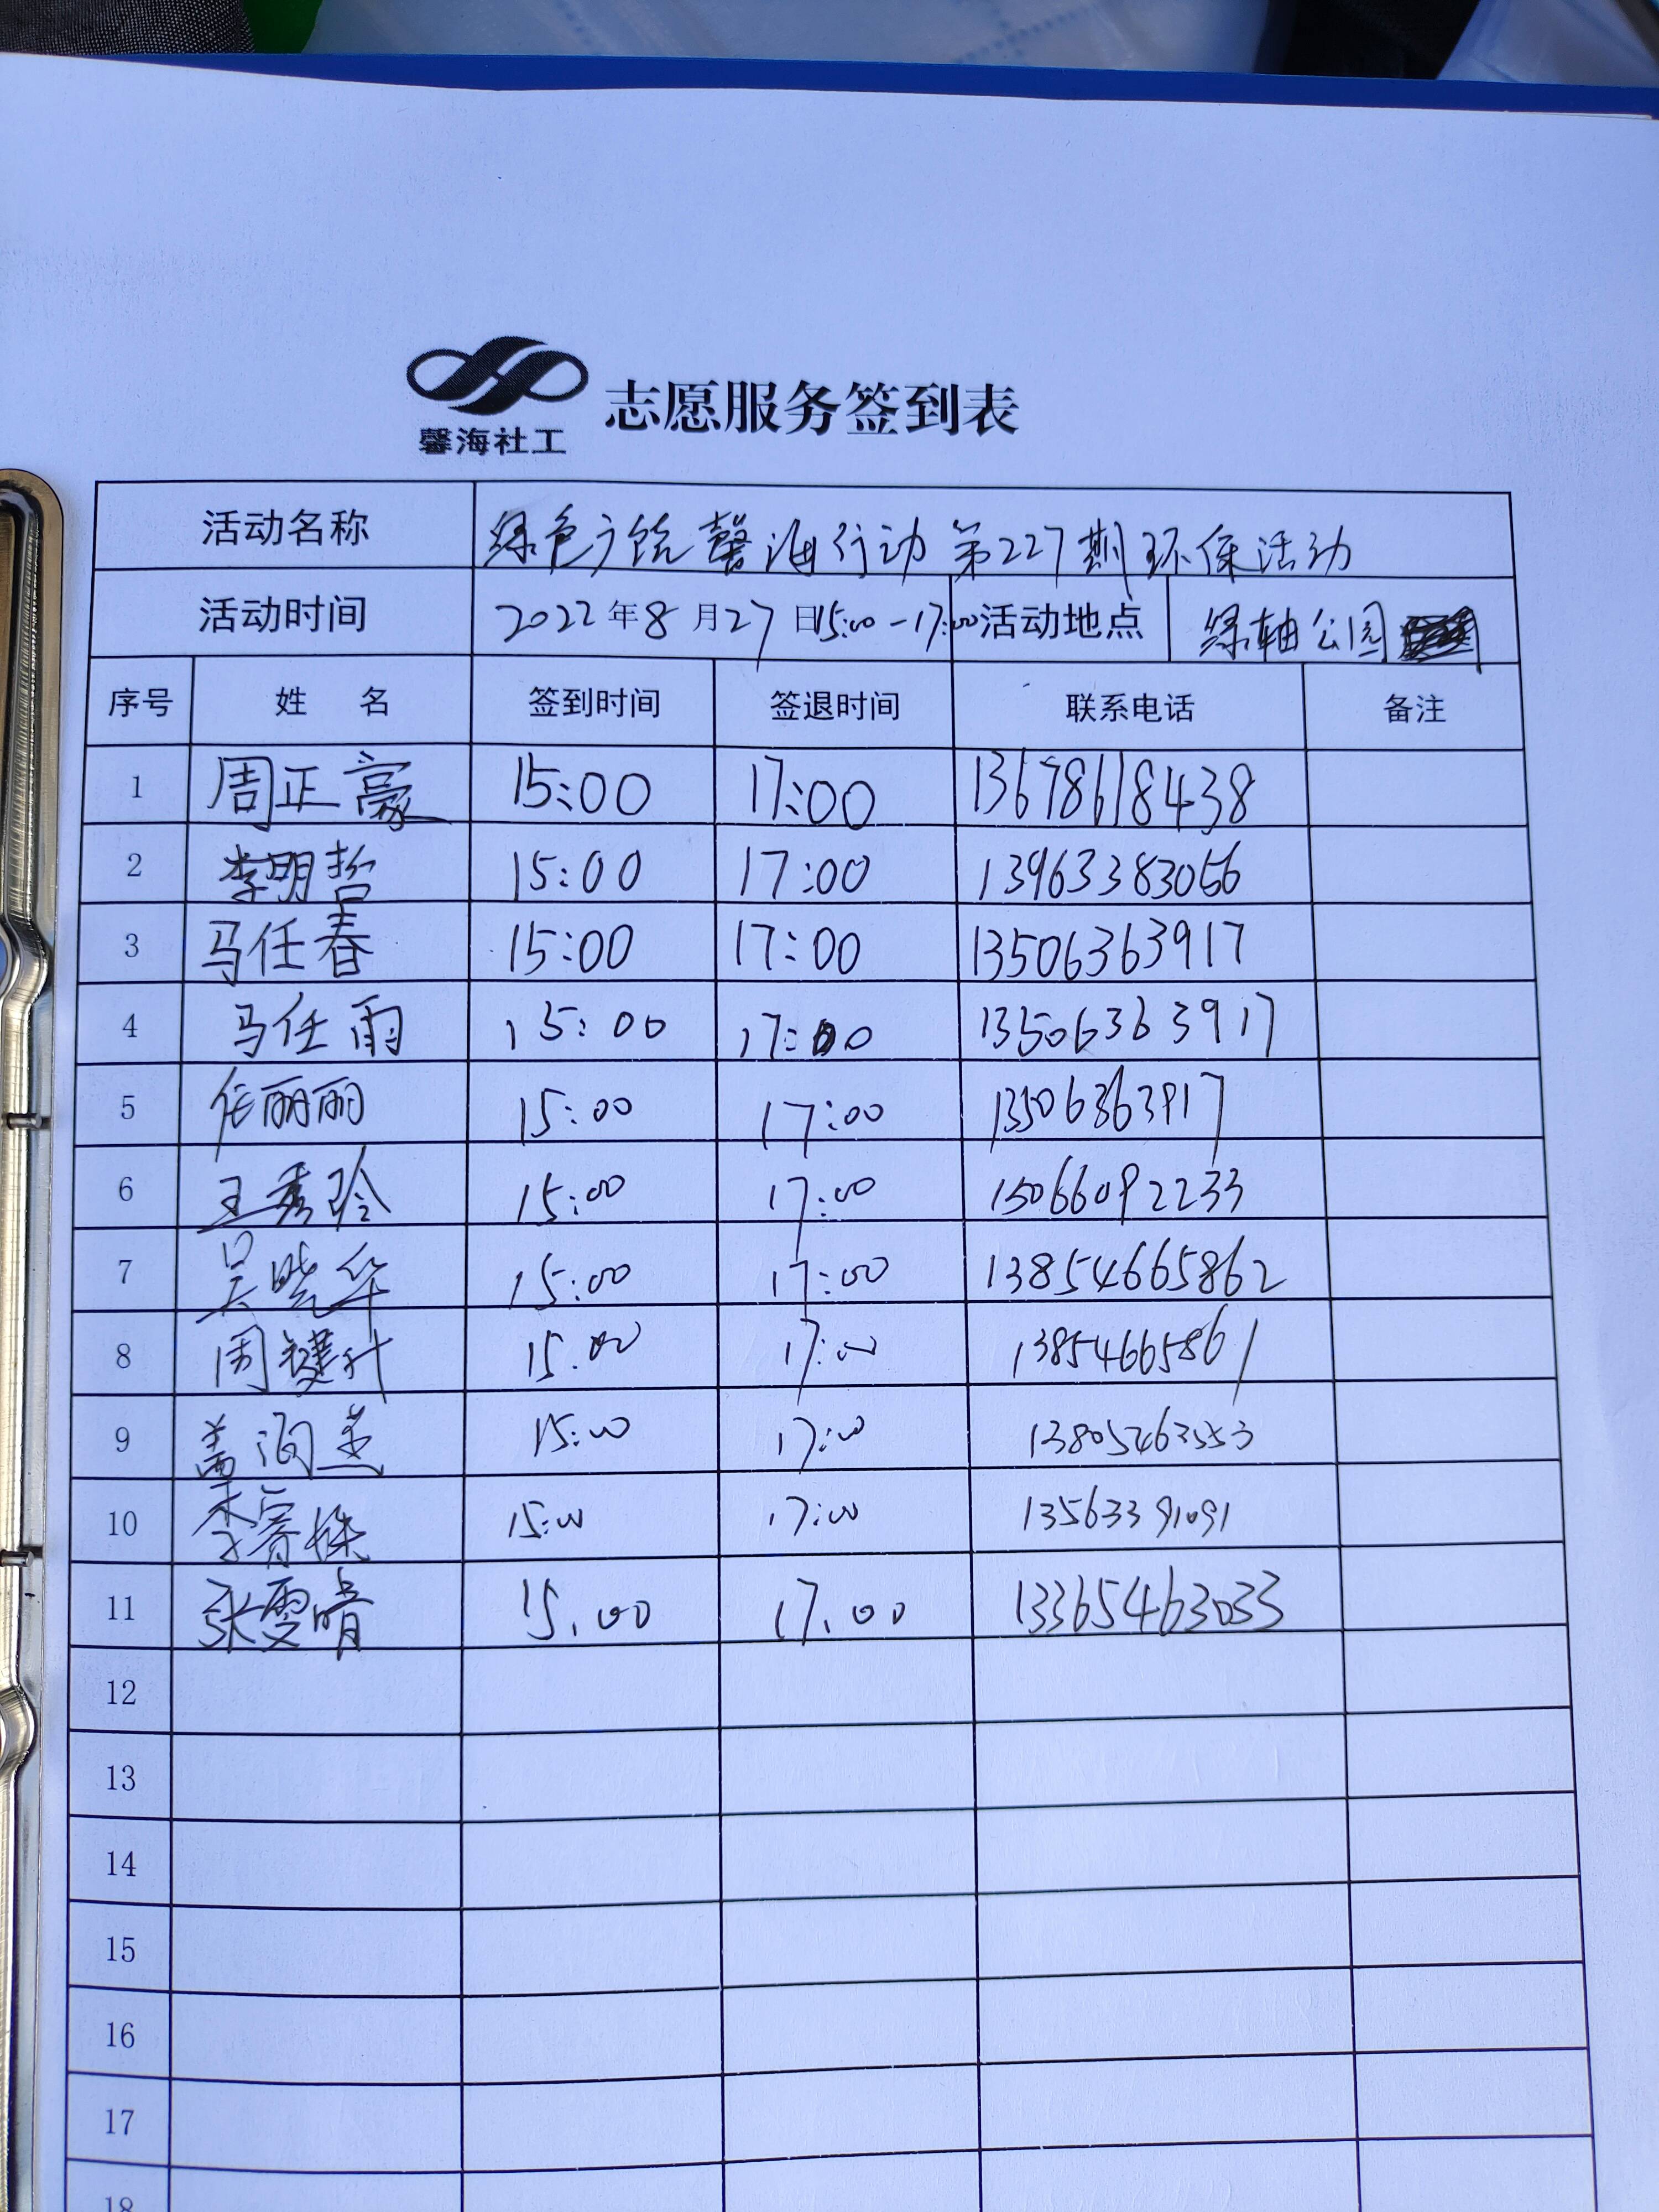 馨海社工
志愿服务签到表
活动名称 绿色广饶 馨海行动 第227期环保活动
活动时间 2022年8月27日15:00-17:00 活动地点 绿轴公园
序号 姓 名 签到时间 签退时间 联系电话 备注
1 周正豪 15:00 17:00 13678618438
2 李明哲 15:00 17:00 13963383066
3 马任春 15:00 17:00 13506363917
4 马任雨 15:00 17:00 13506363917
5 任丽丽 15:00 17:00 13506363917
6 王秀玲 15:00 17:00 15066092233
7 吴晓华 15:00 17:00 13854665862
8 周键升 15:00 17:00 13854665861
9 盖 15:00 17:00 13805463553
10 李 15:00 17:00 13563391091
11 张雯晴 15.00 17.00 13365463033
12
13
14
15
16
17
18